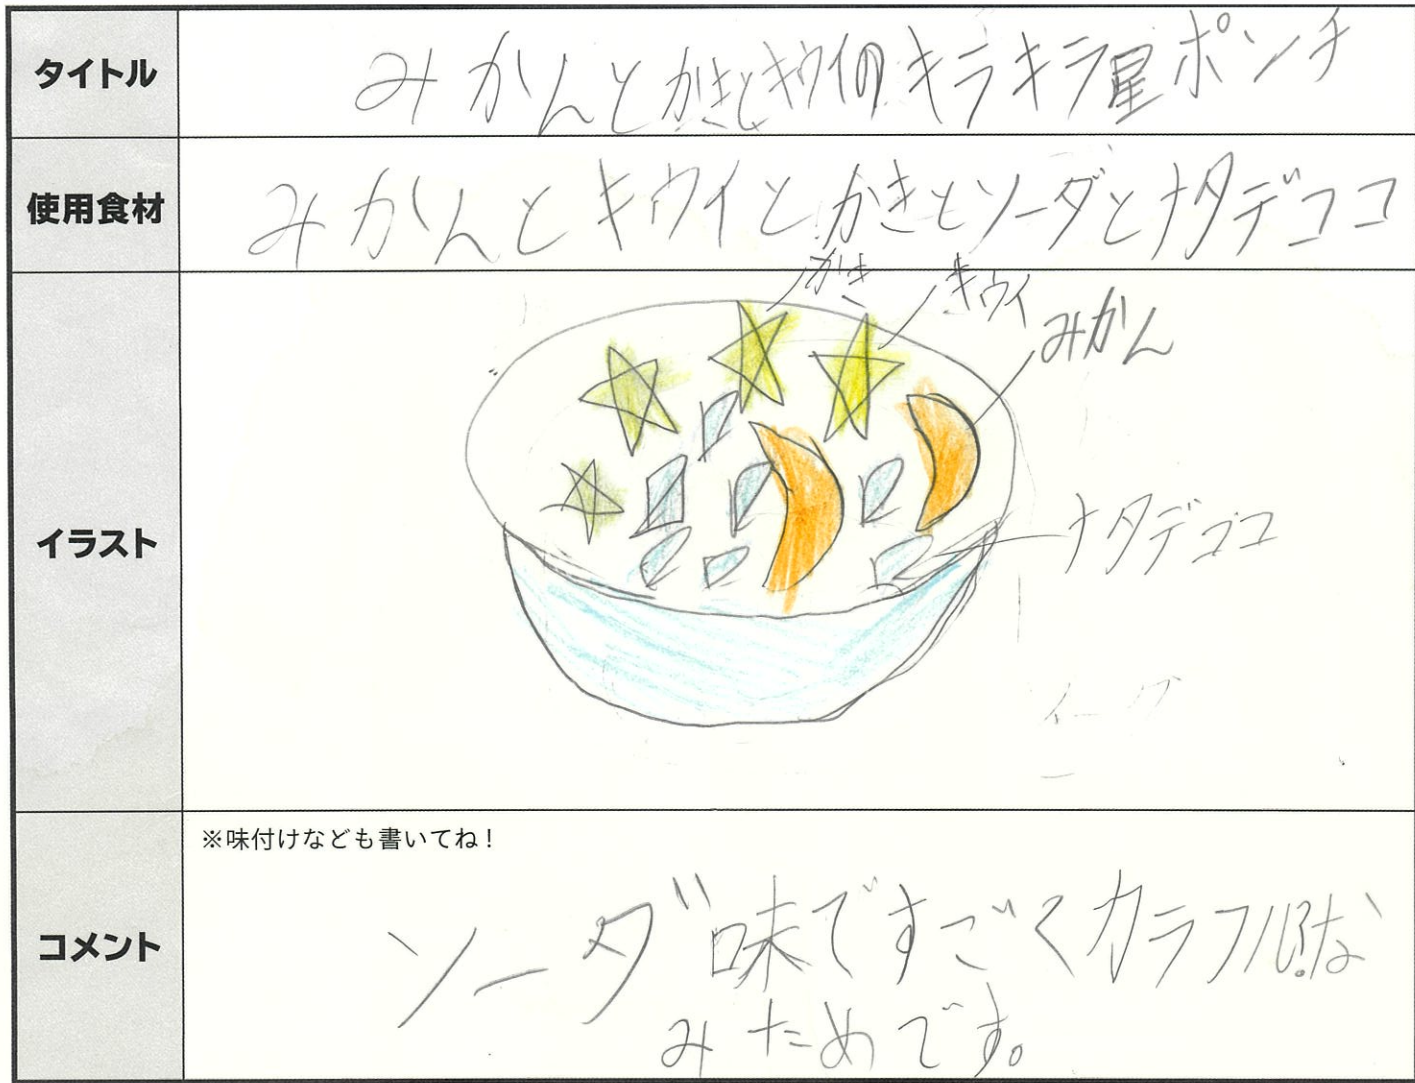 タイトル
みかんとかきとキウイのキラキラ星ポンチ
使用食材
みかんとキウイとかきとソーダとナタデココ
かき
キウイ
みかん
イラスト
ナタデココ
※味付けなども書いてね！
コメント
ソーダ味ですごくカラフルな
みためです。